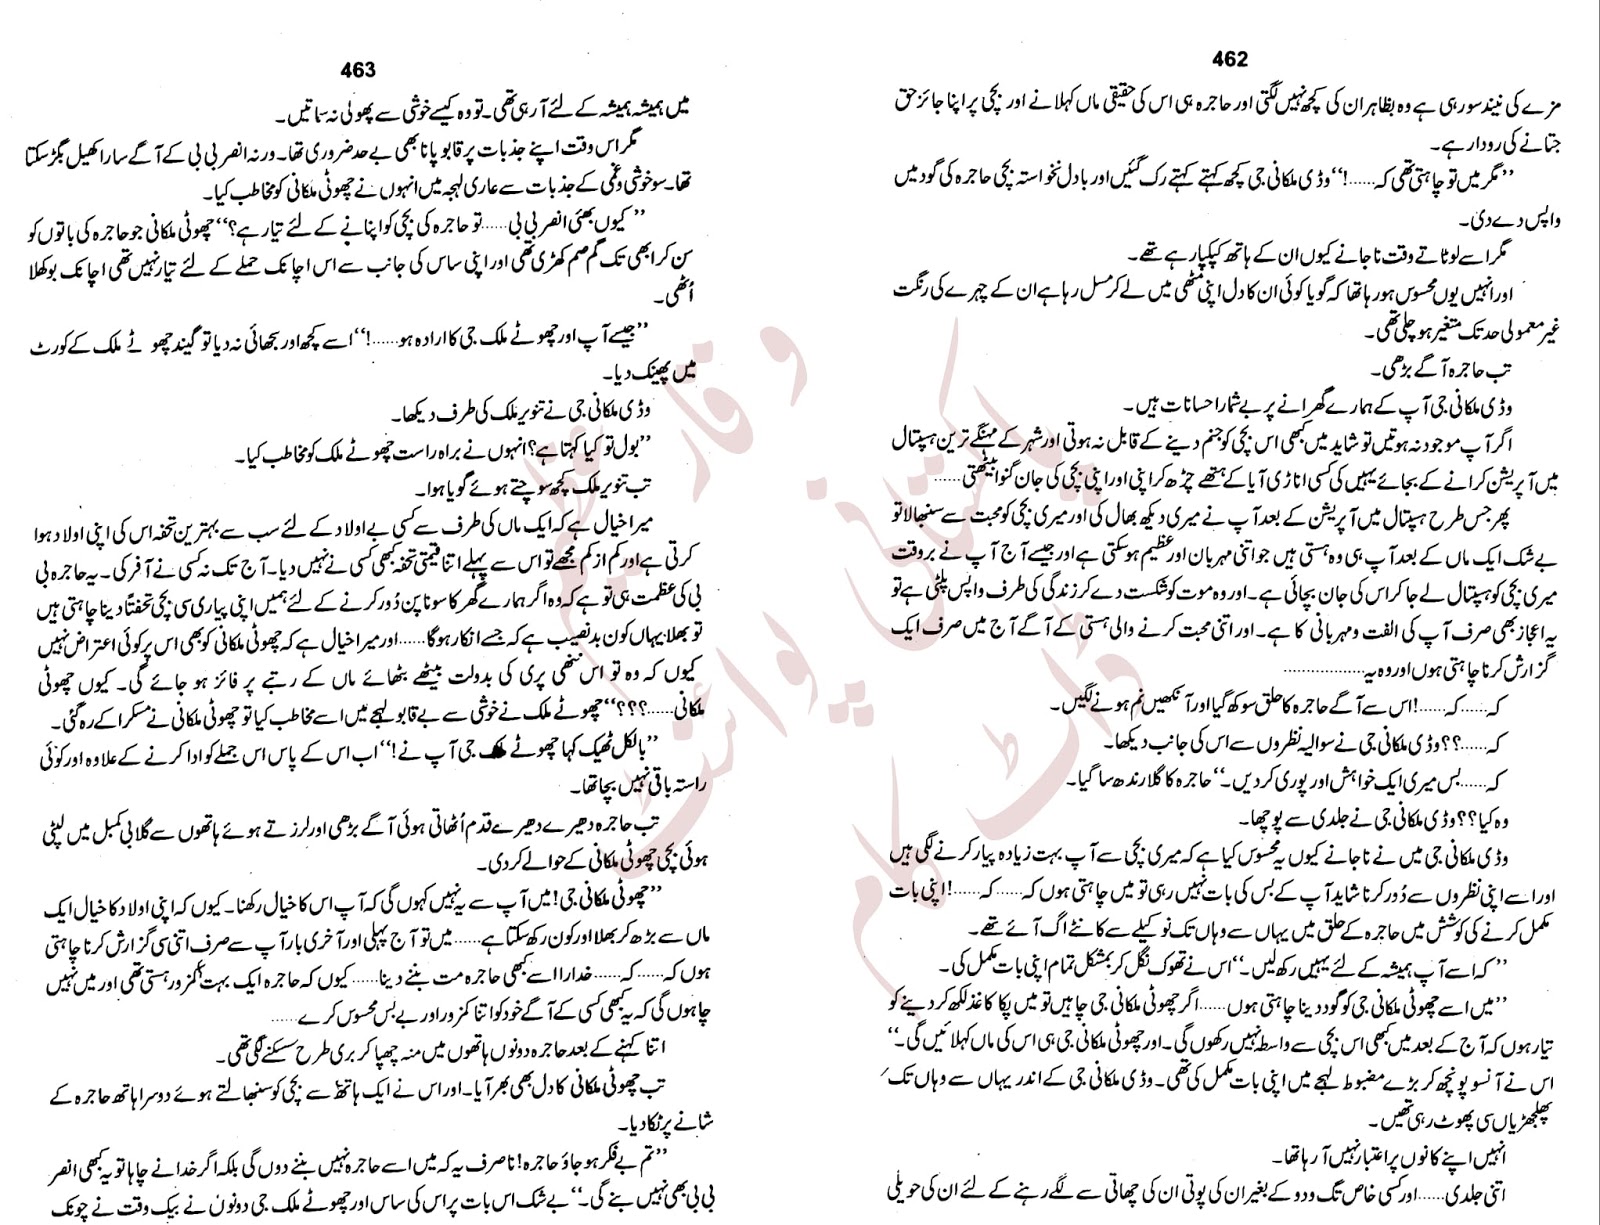 462
مزے کی نیند سو رہی ہے وہ بظاہر ان کی کچھ نہیں لگتی اور حاجرہ ہی اس کی حقیقی ماں کہلانے اور بچی پر اپنا جائز حق
جتانے کی رودار ہے۔
’’مگر میں تو چاہتی تھی کہ......!‘‘ وڈی ملکانی جی کچھ کہتے کہتے رک گئیں اور بادل نخواستہ بچی حاجرہ کی گود میں
واپس دے دی۔
مگر اسے لوٹاتے وقت ناجانے کیوں ان کے ہاتھ کپکپا رہے تھے۔
اور انہیں یوں محسوس ہو رہا تھا کہ گویا کوئی ان کا دل اپنی مٹھی میں لے کر مسل رہا ہے ان کے چہرے کی رنگت
غیر معمولی حد تک متغیر ہو چلی تھی۔
تب حاجرہ آگے بڑھی۔
وڈی ملکانی جی آپ کے ہمارے گھرانے پر بے شمار احسانات ہیں۔
اگر آپ موجود نہ ہوتیں تو شاید میں کبھی اس بچی کو جنم دینے کے قابل نہ ہوتی اور شہر کے مہنگے ترین ہسپتال
میں آپریشن کرانے کے بجائے یہیں کی کسی اناڑی آیا کے ہتھے چڑھ کر اپنی اور اپنی بچی کی جان گنوا بیٹھتی......
پھر جس طرح ہسپتال میں آپریشن کے بعد آپ نے میری دیکھ بھال کی اور میری بچی کو محبت سے سنبھالا تو
بے شک ایک ماں کے بعد آپ ہی وہ ہستی ہیں جو اتنی مہربان اور عظیم ہو سکتی ہے اور جیسے آج آپ نے بروقت
میری بچی کو ہسپتال لے جا کر اس کی جان بچائی ہے۔ اور وہ موت کو شکست دے کر زندگی کی طرف واپس پلٹی ہے تو
یہ اعجاز بھی صرف آپ کی الفت و مہربانی کا ہے۔ اور اتنی محبت کرنے والی ہستی کے آگے آج میں صرف ایک
گزارش کرنا چاہتی ہوں اور وہ یہ..................
کہ......کہ......! اس سے آگے حاجرہ کا حلق سوکھ گیا اور آنکھیں نم ہونے لگیں۔
کہ......؟؟ وڈی ملکانی جی نے سوالیہ نظروں سے اس کی جانب دیکھا۔
کہ......بس میری ایک خواہش اور پوری کر دیں۔‘‘ حاجرہ کا گلا رندھ سا گیا۔
وہ کیا؟؟ وڈی ملکانی جی نے جلدی سے پوچھا۔
وڈی ملکانی جی میں نے ناجانے کیوں یہ محسوس کیا ہے کہ میری بچی سے آپ بہت زیادہ پیار کرنے لگی ہیں
اور اسے اپنی نظروں سے دُور کرنا شاید آپ کے بس کی بات نہیں رہی تو میں چاہتی ہوں کہ......کہ......! اپنی بات
مکمل کرنے کی کوشش میں حاجرہ کے حلق میں یہاں سے وہاں تک نوکیلے سے کانٹے اگ آئے تھے۔
’’کہ اسے آپ ہمیشہ کے لئے یہیں رکھ لیں۔‘‘ اس نے تھوک نگل کر بمشکل تمام اپنی بات مکمل کی۔
’’میں اسے چھوٹی ملکانی جی کو گود دینا چاہتی ہوں......اگر چھوٹی ملکانی جی چاہیں تو میں پکا کاغذ لکھ کر دینے کو
تیار ہوں کہ آج کے بعد میں کبھی اس بچی سے واسطہ نہیں رکھوں گی۔ اور چھوٹی ملکانی جی ہی اس کی ماں کہلائیں گی۔‘‘
اس نے آنسو پونچھ کر بڑے مضبوط لہجے میں اپنی بات مکمل کی تھی۔ وڈی ملکانی جی کے اندر یہاں سے وہاں تک
پھلجھڑیاں سی پھوٹ رہی تھیں۔
انہیں اپنے کانوں پر اعتبار نہیں آ رہا تھا۔
اتنی جلدی......اور کسی خاص تگ و دو کے بغیر ان کی پوتی ان کی چھاتی سے لگے رہنے کے لئے ان کی حویلی
463
میں ہمیشہ ہمیشہ کے لئے آ رہی تھی۔ تو وہ کیسے خوشی سے پھولی نہ ساتیں۔
مگر اس وقت اپنے جذبات پر قابو پانا بھی بے حد ضروری تھا۔ ورنہ انصر بی بی کے آگے سارا کھیل بگڑ سکتا
تھا۔ سو خوشی و غمی کے جذبات سے عاری لہجہ میں انہوں نے چھوٹی ملکانی کو مخاطب کیا۔
’’کیوں بھئی انصر بی بی......تو حاجرہ کی بچی کو اپنانے کے لئے تیار ہے؟‘‘ چھوٹی ملکانی جو حاجرہ کی باتوں کو
سن کر ابھی تک گم صم کھڑی تھی اور اپنی ساس کی جانب سے اس اچانک حملے کے لئے تیار نہیں تھی اچانک بوکھلا
اُٹھی۔
’’جیسے آپ اور چھوٹے ملک جی کا ارادہ ہو......!‘‘ اسے کچھ اور سجھائی نہ دیا تو گیند چھوٹے ملک کے کورٹ
میں پھینک دیا۔
وڈی ملکانی جی نے تنویر ملک کی طرف دیکھا۔
’’بول تو کیا کہتا ہے؟ انہوں نے براہ راست چھوٹے ملک کو مخاطب کیا۔
تب تنویر ملک کچھ سوچتے ہوئے گویا ہوا۔
میرا خیال ہے کہ ایک ماں کی طرف سے کسی بے اولاد کے لئے سب سے بہترین تحفہ اس کی اپنی اولاد ہوا
کرتی ہے اور کم از کم مجھے تو اس سے پہلے اتنا قیمتی تحفہ کبھی کسی نے نہیں دیا۔ آج تک نہ کسی نے آفر کی۔ یہ حاجرہ بی
بی کی عظمت ہی تو ہے کہ وہ اگر ہمارے گھر کا سونا پن دُور کرنے کے لئے ہمیں اپنی پیاری سی بچی تحفتاً دینا چاہتی ہیں
تو بھلا یہاں کون بدنصیب ہے کہ جسے انکار ہوگا......اور میرا خیال ہے کہ چھوٹی ملکانی کو بھی اس پر کوئی اعتراض نہیں
کیوں کہ وہ تو اس ننھی پری کی بدولت بیٹھے بٹھائے ماں کے رتبے پر فائز ہو جائے گی۔ کیوں چھوٹی
ملکانی......؟؟؟‘‘ چھوٹے ملک نے خوشی سے بے قابو لہجے میں اسے مخاطب کیا تو چھوٹی ملکانی نے مسکرا کے رہ گئی۔
’’بالکل ٹھیک کہا چھوٹے ملک جی آپ نے!‘‘ اب اس کے پاس اس جملے کو ادا کرنے کے علاوہ اور کوئی
راستہ باقی نہیں بچا تھا۔
تب حاجرہ دھیرے دھیرے قدم اُٹھاتی ہوئی آگے بڑھی اور لرزتے ہوئے ہاتھوں سے گلابی کمبل میں لپٹی
ہوئی بچی چھوٹی ملکانی کے حوالے کر دی۔
’’چھوٹی ملکانی جی! میں آپ سے یہ نہیں کہوں گی کہ آپ اس کا خیال رکھنا۔ کیوں کہ اپنی اولاد کا خیال ایک
ماں سے بڑھ کر بھلا اور کون رکھ سکتا ہے......میں تو آج پہلی اور آخری بار آپ سے صرف اتنی سی گزارش کرنا چاہتی
ہوں کہ......کہ......خدارا اسے کبھی حاجرہ مت بننے دینا......کیوں کہ حاجرہ ایک بہت کمزور ہستی تھی اور میں نہیں
چاہوں گی کہ یہ کبھی کسی کے آگے خود کو اتنا کمزور اور بے بس محسوس کرے......
اتنا کہنے کے بعد حاجرہ دونوں ہاتھوں میں منہ چھپا کر بری طرح سسکنے لگی تھی۔
تب چھوٹی ملکانی کا دل بھی بھر آیا۔ اور اس نے ایک ہاتھ سے بچی کو سنبھالتے ہوئے دوسرا ہاتھ حاجرہ کے
شانے پر ٹکا دیا۔
’’تم بے فکر ہو جاؤ حاجرہ! نا صرف یہ کہ میں اسے حاجرہ نہیں بننے دوں گی بلکہ اگر خدا نے چاہا تو یہ کبھی انصر
بی بی بھی نہیں بنے گی۔‘‘ بے شک اس بات پر اس کی ساس اور چھوٹے ملک جی دونوں نے بیک وقت نے چونک
پاکستانی پوائنٹ
ڈاٹ کام
وقار عظیم